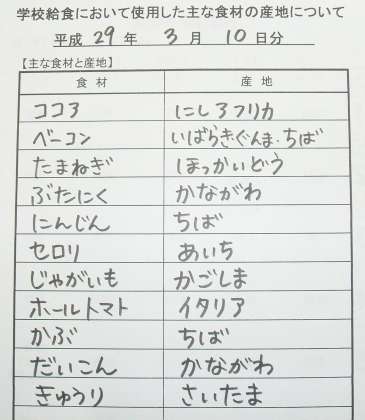 学校給食において使用した主な食材の産地について
平成 29 年 3 月 10 日分
【主な食材と産地】
食材 産地
ココア にしアフリカ
ベーコン いばらき・ぐんま・ちば
たまねぎ ほっかいどう
ぶたにく かながわ
にんじん ちば
セロリ あいち
じゃがいも かごしま
ホールトマト イタリア
かぶ ちば
だいこん かながわ
きゅうり さいたま